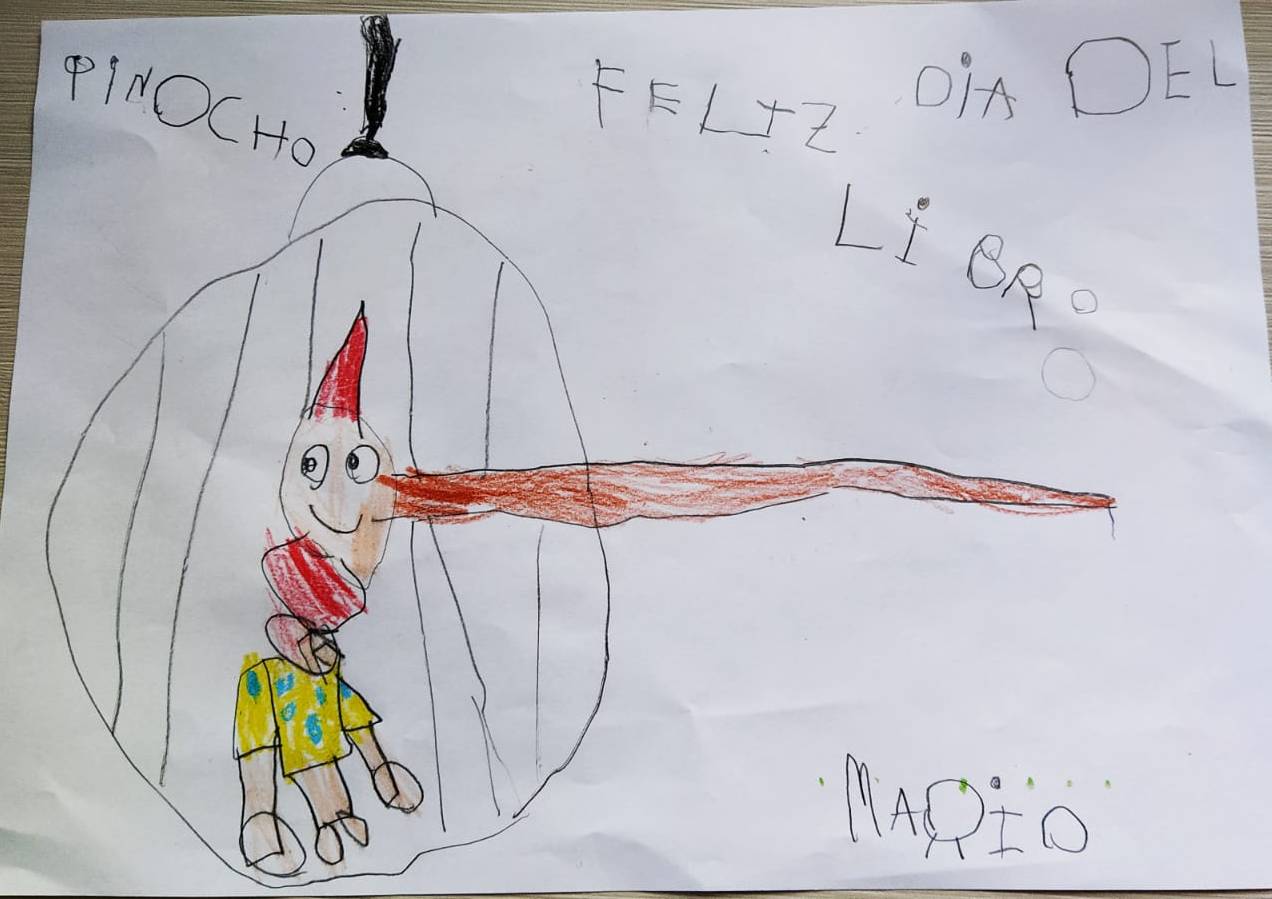 PINOCHO
FELIZ DIA DEL
LIBRO
MARIO